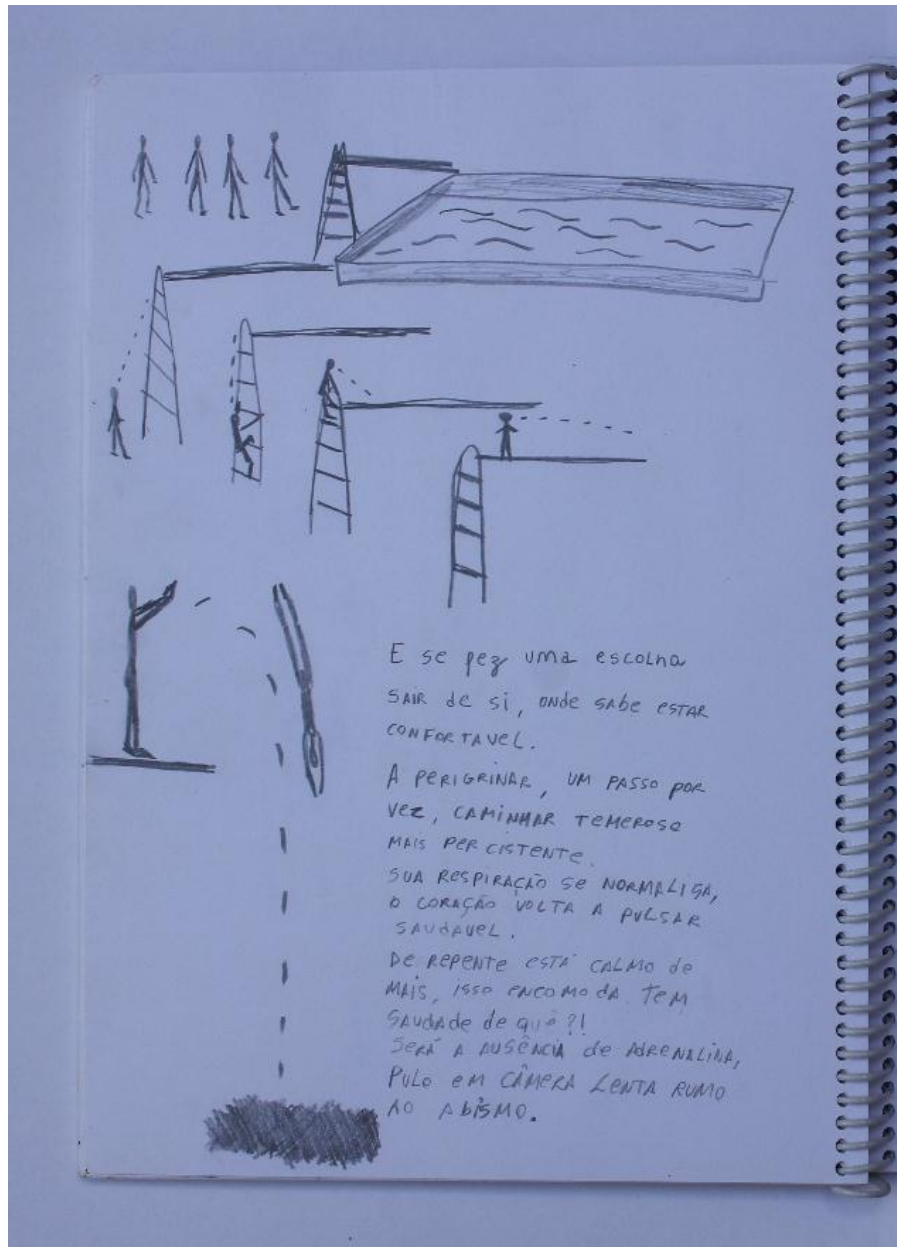 E se fez uma escolha
SAIR de si, onde sabe ESTAR
CONFORTAVEL.
A PERIGRINAR, UM PASSO POR
VEZ, CAMINHAR TEMEROSO
MAIS PERCISTENTE.
SUA RESPIRAÇÃO SE NORMALIZA,
O CORAÇÃO VOLTA A PULSAR
SAUDAVEL.
DE REPENTE ESTÁ CALMO de
MAIS, ISSO ENCOMODA. TEM
SAUDADE de quê?!
SERÁ A AUSÊNCIA de ADRENALINA,
PULO EM CÂMERA LENTA RUMO
AO ABISMO.